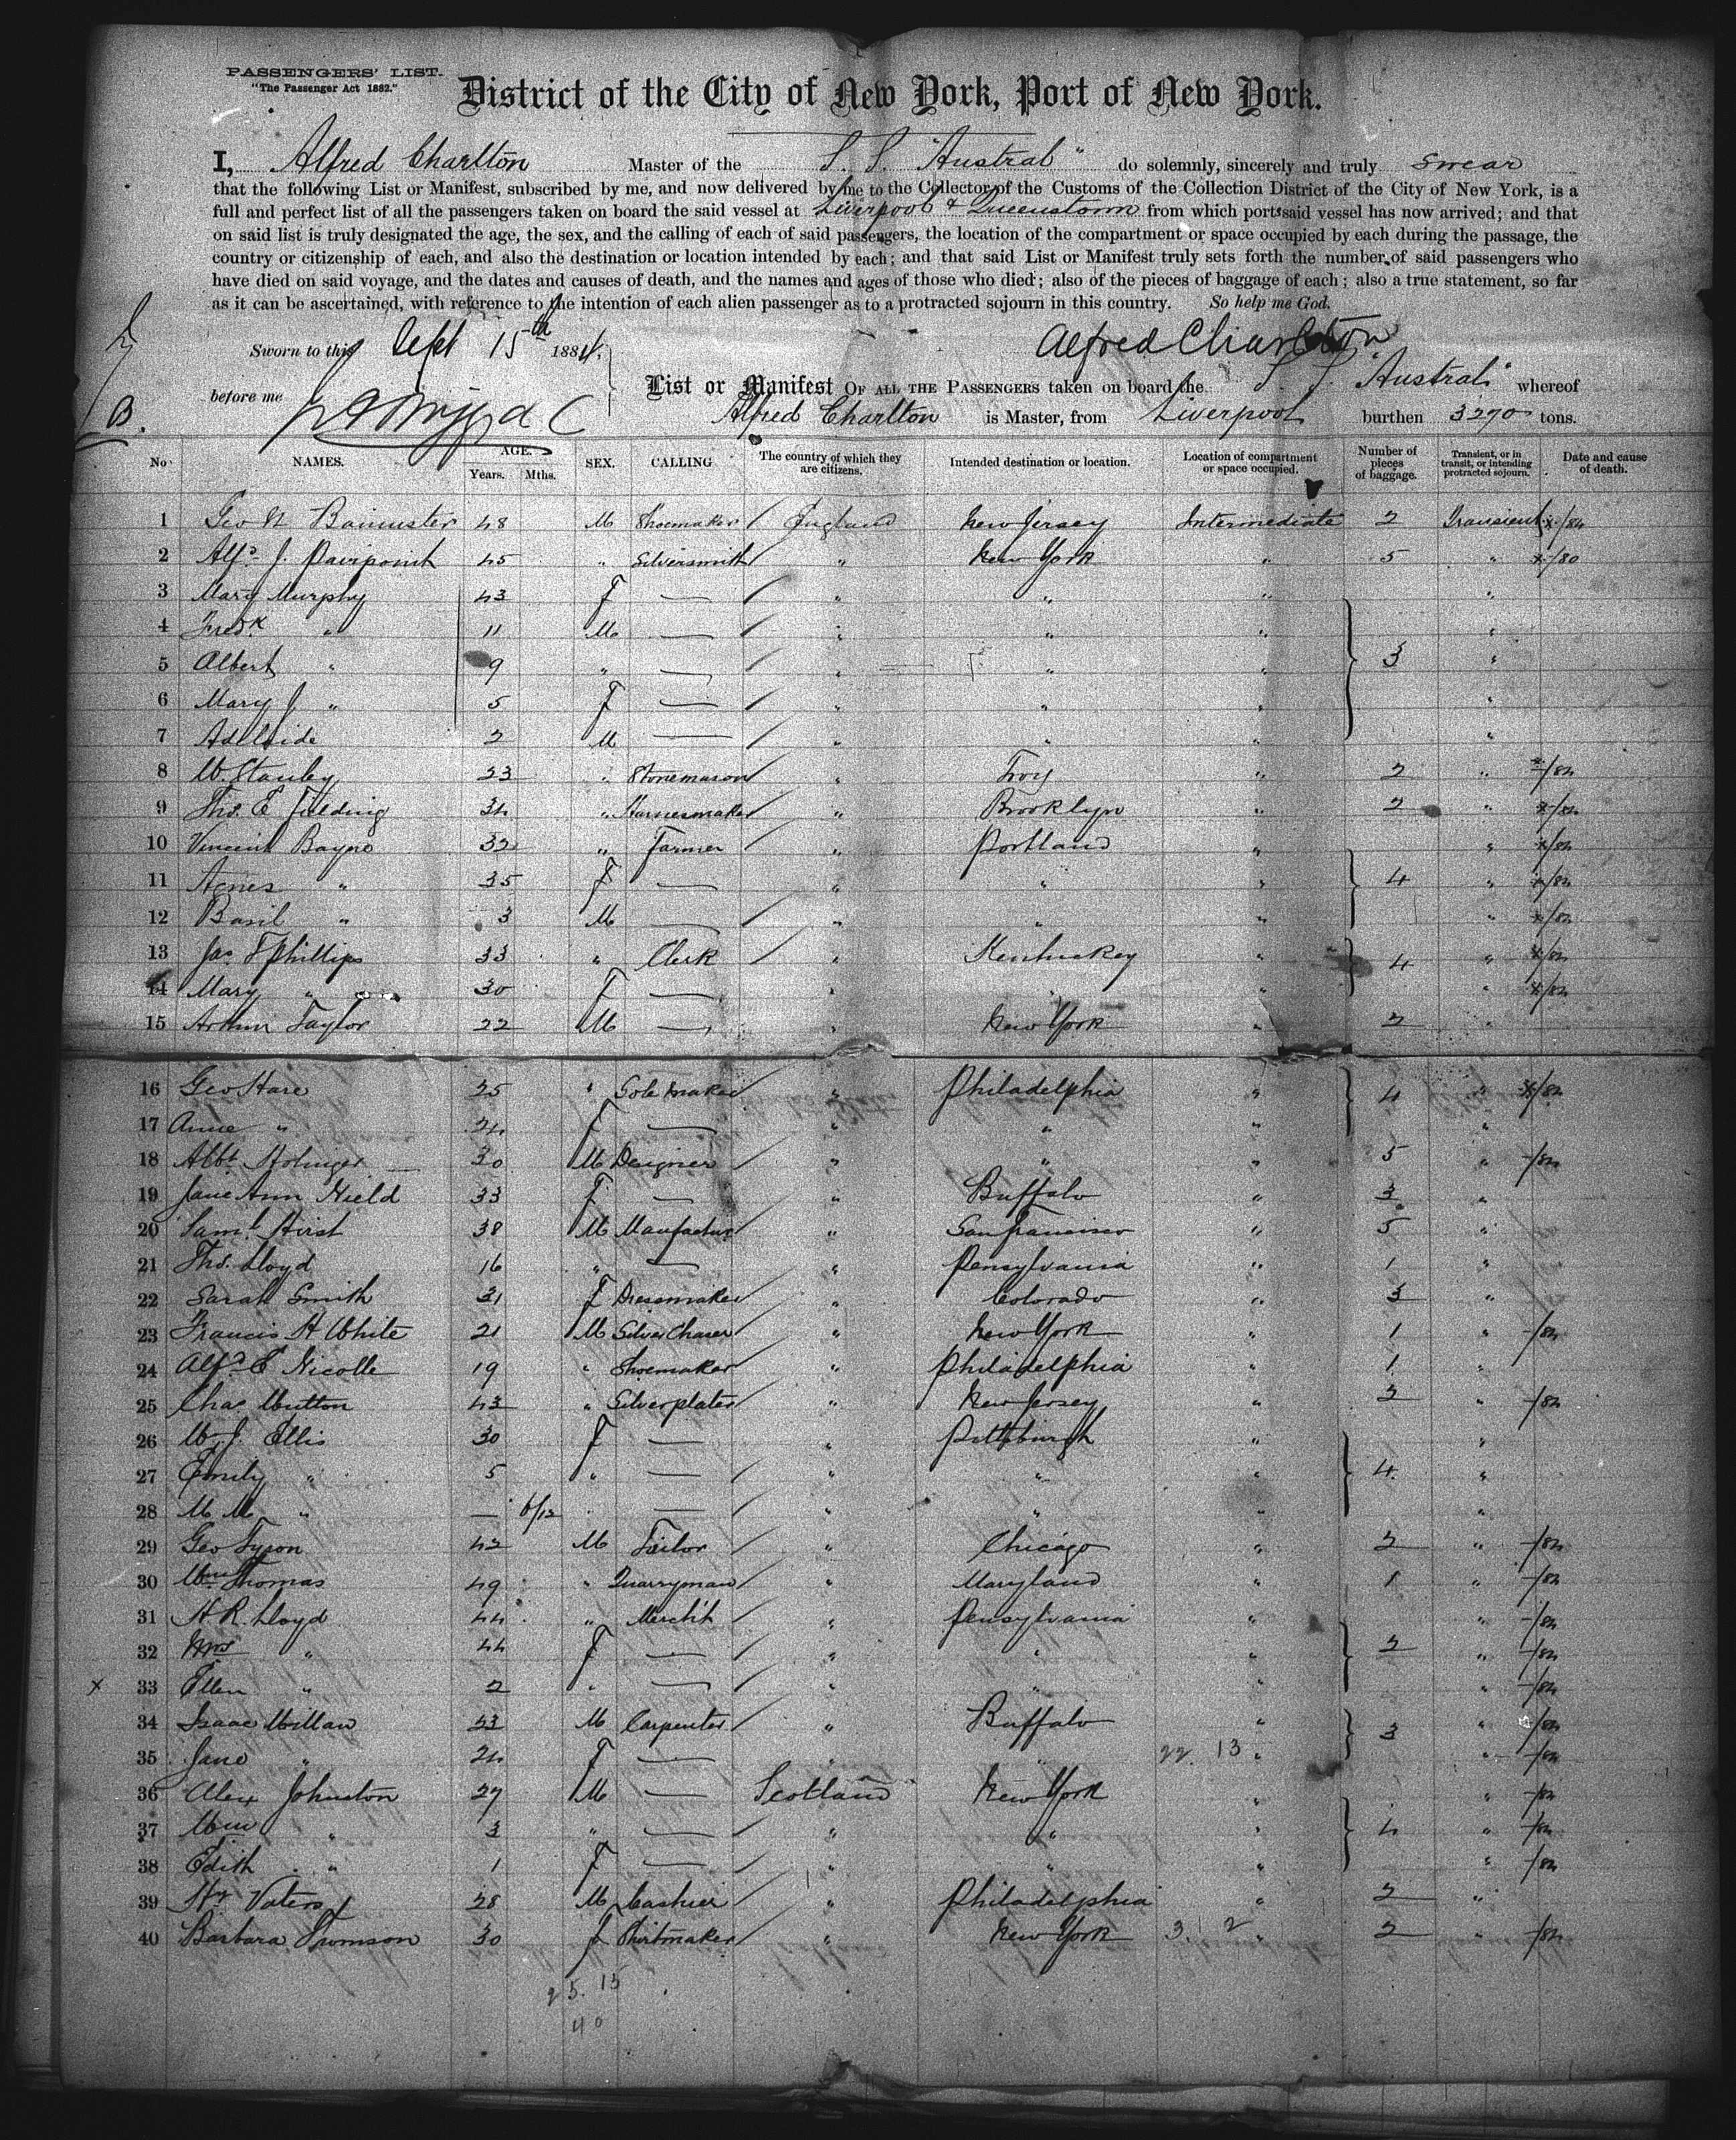 PASSENGERS' LIST.
"The Passenger Act 1882."
District of the City of New York, Port of New York.
I, Alfred Charlton Master of the S. S. "Austral" do solemnly, sincerely and truly swear
that the following List or Manifest, subscribed by me, and now delivered by me to the Collector of the Customs of the Collection District of the City of New York, is a
full and perfect list of all the passengers taken on board the said vessel at Liverpool & Queenstown from which port s said vessel has now arrived; and that
on said list is truly designated the age, the sex, and the calling of each of said passengers, the location of the compartment or space occupied by each during the passage, the
country or citizenship of each, and also the destination or location intended by each; and that said List or Manifest truly sets forth the number of said passengers who
have died on said voyage, and the dates and causes of death, and the names and ages of those who died; also of the pieces of baggage of each; also a true statement, so far
as it can be ascertained, with reference to the intention of each alien passenger as to a protracted sojourn in this country. So help me God.
Sworn to this Sept 15th 1884. Alfred Charlton
before me
B.
List or Manifest OF ALL THE PASSENGERS taken on board the S. S. "Austral" whereof
Alfred Charlton is Master, from Liverpool burthen 3270 tons.
No NAMES. AGE. Years. Mths. SEX. CALLING The country of which they are citizens. Intended destination or location. Location of compartment or space occupied. Number of pieces of baggage. Transient, or in transit, or intending protracted sojourn. Date and cause of death.
1 Geo Bannister 48 M Shoemaker / England New Jersey Intermediate 2 Transient
2 Alfd J. Pairpoint 45 " Silversmith / " New York " 5 "
3 Mary Murphy 43 F — / " " " "
4 Fredk " 11 M — / " " " "
5 Albert " 9 " — / " " " 3 "
6 Mary J " 5 F — / " " " "
7 Adelaide 2 M — / " " " "
8 W. Stanley 23 " Stonemason / " Troy " 2 "
9 Thos. E Fielding 34 " Harnesmaker / " Brooklyn " 2 "
10 Vincent Bayne 32 " Farmer / " Portland " "
11 Agnes " 35 F — / " " " 4 "
12 Basil " 3 M — / " " " "
13 Jas T Phillips 33 " Clerk / " Kentuckey " 4 "
14 Mary " 30 F — " " " "
15 Arthur Taylor 22 M — " New York " 2 "
16 Geo Hare 25 " Sole maker / " Philadelphia " 4 "
17 Anne " 24 F — / " " " "
18 Albt. 30 M Deigner / " " " 5 "
19 Jane Ann Nield 33 F — / " Buffalo " 3 "
20 Saml. Hirst 38 M / " San Francisco " 5 "
21 Thos. Lloyd 16 " — " Pensylvania " 1 "
22 Sarah Smith 31 F Dressmaker / " Colorado " 3 "
23 Francis H White 21 M Silver Chaser / " New York " 1 "
24 Alfd. E Nicolle 19 " Shoemaker / " Philadelphia " 1 "
25 Chas Mutton 43 " Silverplater / " New Jersey " 2 "
26 J. Ellis 30 F — / " Pittsburgh " "
27 Emily " 5 " — / " " " 4. "
28 M M " — 6/12 " — / " " " "
29 Geo Tyson 42 M Tailor / " Chicago " 2 "
30 Wm Thomas 49 " Quarryman / " Maryland " 1 "
31 H. R. Lloyd 44 " Mercht / " Pensylvania " "
32 Mrs " 44 F — / " " " 2 "
33 Ellen " 2 " — / " " " "
34 Isaac Millan 23 M Carpenter / " Buffalo " "
35 Jane " 24 F — / " " 22. 13 " 3 "
36 Alex Johnston 27 M — / Scotland New York " "
37 Wm " 3 " — / " " " 4 "
38 Edith " 1 F — / " " " "
39 Hy Vaters 28 M Cashier / " Philadelphia " 2 "
40 Barbara Thomson 30 F Shirtmaker / " New York 3. 2 " 2 "
25. 15
40